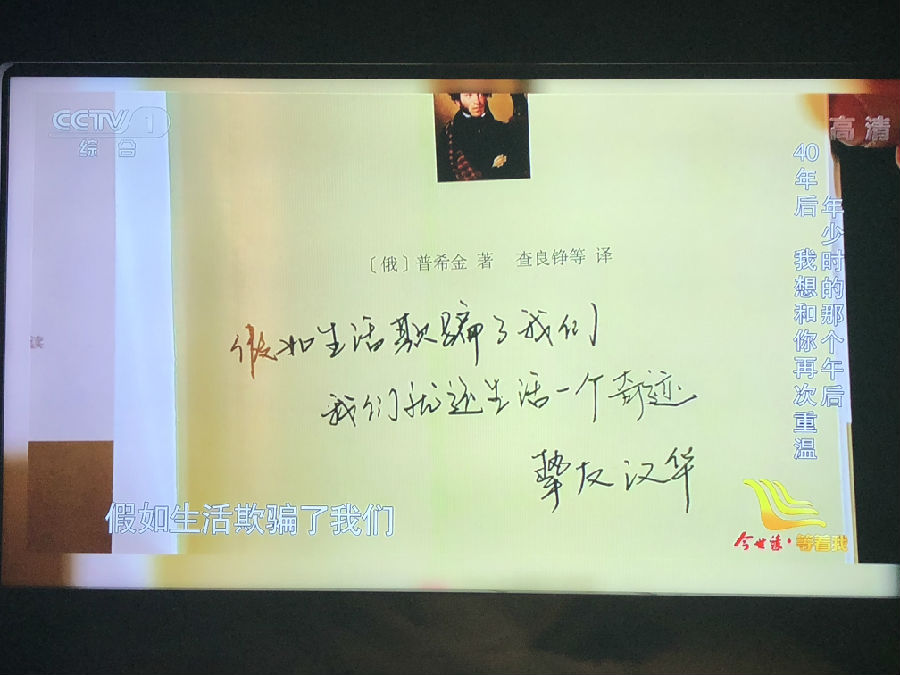 CCTV 1
综合
高清
40年后 我想和你再次重温
年少时的那个午后
〔俄〕普希金 著 查良铮等 译
假如生活欺骗了我们
我们就还生活一个奇迹
挚友汉华
假如生活欺骗了我们
今世缘·等着我